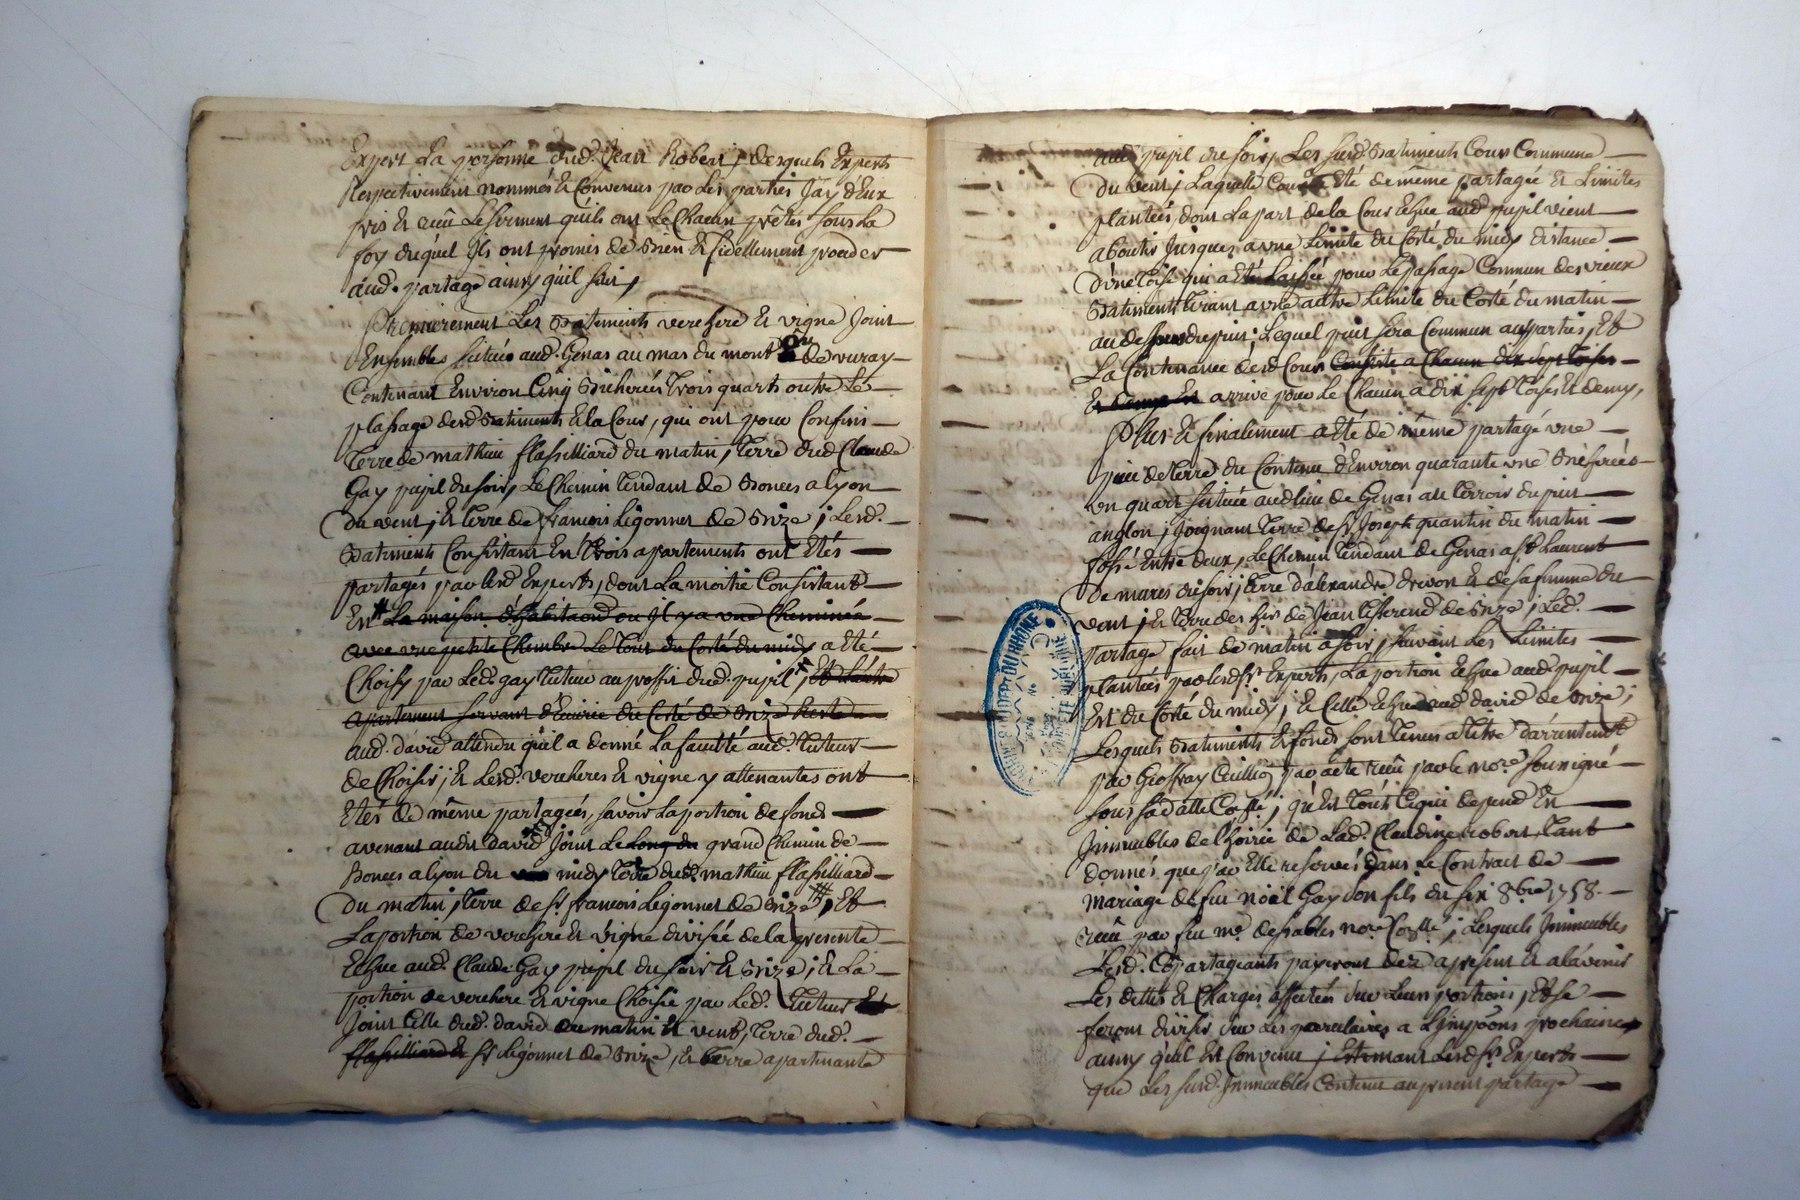 Expert La personne dud. Jean Robert, desquels Experts
Respectivement nommés Et Convenus par Les parties J'ay d'Eux
pris Et reçu Le serment qu'ils ont Le Chacun prêter sous La
foy duquel Ils ont promis de Bien & fidellement proceder
aud. partage ainsy qu'il suit,
Premierement Les Batiments verchere Et vigne Joint
Ensembles situés aud. Genas au mas du mont de vuray
Contenant Environ Cinq Bicherées Trois quarts outre Le
plassage desd Batiments Et la Cour, qui ont pour Confins
Terre de mathieu flassilliard du matin, Terre dud Claude
Gay pupil du soir, Le Chemin Tendant de Bonces a lyon
du vent, Et Terre de francois Ligonnet de Brize, Lesd.
Batiments Consistant En Trois apartements ont Etés
partagés par lesd Experts, dont La moitié Consistant
En La maison d'habitaon ou Il y a une Cheminée
avec une petite Chambre Le Tout du Costé du midy a Eté
Choisy par Led. gay Tuteur au proffit dud. pupil, Et L'autre
apartement servant d'Ecurie du Costé de Brize Reste
aud. david attendu qu'il a donné La faculté aud. Tuteur
de Choisir, Et Lesd. vercheres Et vigne y attenantes ont
Etés de même partagées, savoir La portion de fonds
avenant audit david Joint Le Long du grand Chemin de
Bonces a lyon du midy Terre dud. mathieu flassilliard
du matin, Terre de sr. francois Ligonnet de Brize, Et
La portion de verchere Et vigne divisée de la presente
Echue aud. Claude Gay pupil du soir Et Brize, Et La
portion de verchere Et vigne Choisie par Led. Tuteur Et
Joint Celle dud. david du matin Et vent, Terre dud.
flassilliard Et sr Ligonnet de Brize, Et terre apartenante
aud. pupil du soir, Les susd. Batiments Cour Commune
du vent, Laquelle Cour a Eté de même partagée Et Limites
plantées dont La part de la Cour Echue aud pupil vient
aboutir Jusques a une Limite du Costé du midy distance
d'une Toise qui a Eté Laissée pour Le passage Commun des vieux
Batiments Tirant a une autre Limite du Costé du matin
au dessous du puis, Lequel puit sera Commun aux parties, Et
La Contenance desd Cour Consiste a Chacun dix sept Toises
arrive pour Le Chacun a dix sept Toises Et demy,
Plus Et finalement a Eté de même partagé une
piece de Terre du Contenu d'Environ quarante une Bicherées
un quart située aud lieu de Genas au Terroir du puit
anglon, Joignant Terre de sr Joseph quantin du matin
fossé Entre deux, Le Chemin Tendant de Genas a st Laurent
de mures du soir, terre d'alexandre drevon Et de sa femme du
vent, Et Terre des hrs de Jean Tisserend de Brize, Led.
partage fait de matin a soir, suivant Les Limites
plantées par lesd srs Experts, La portion Echue aud. pupil
Est du Costé du midy, Et Celle Echue aud david de Brize,
Lesquels Batiments Et fonds sont Tenus a titre d'arrentement
par Geoffray Cuillio par acte reçu par le nore. sousigné
sous sa datte Coslé, qu'Est Tout Ce qui depend En
Immeubles de l'hoirie de Lad. Claudine robert, Tant
donnés, que par Elle reservés dans Le Contrat de
mariage de feu noël Gay son fils du six 8bre 1758.
reçu par feu me. desables nore Coslé, Lesquels Immeubles
Lesd. Copartageants payeront dez a present Et a l'avenir
Les dettes Et Charges affectées sur Leurs portions, Et se
feront diviser sur Les parcelaires a L'imposons prochaine
ainsy qu'il Est Convenu, Estimant Lesd srs Experts
que Les susd. Immeubles Contenus au present partage